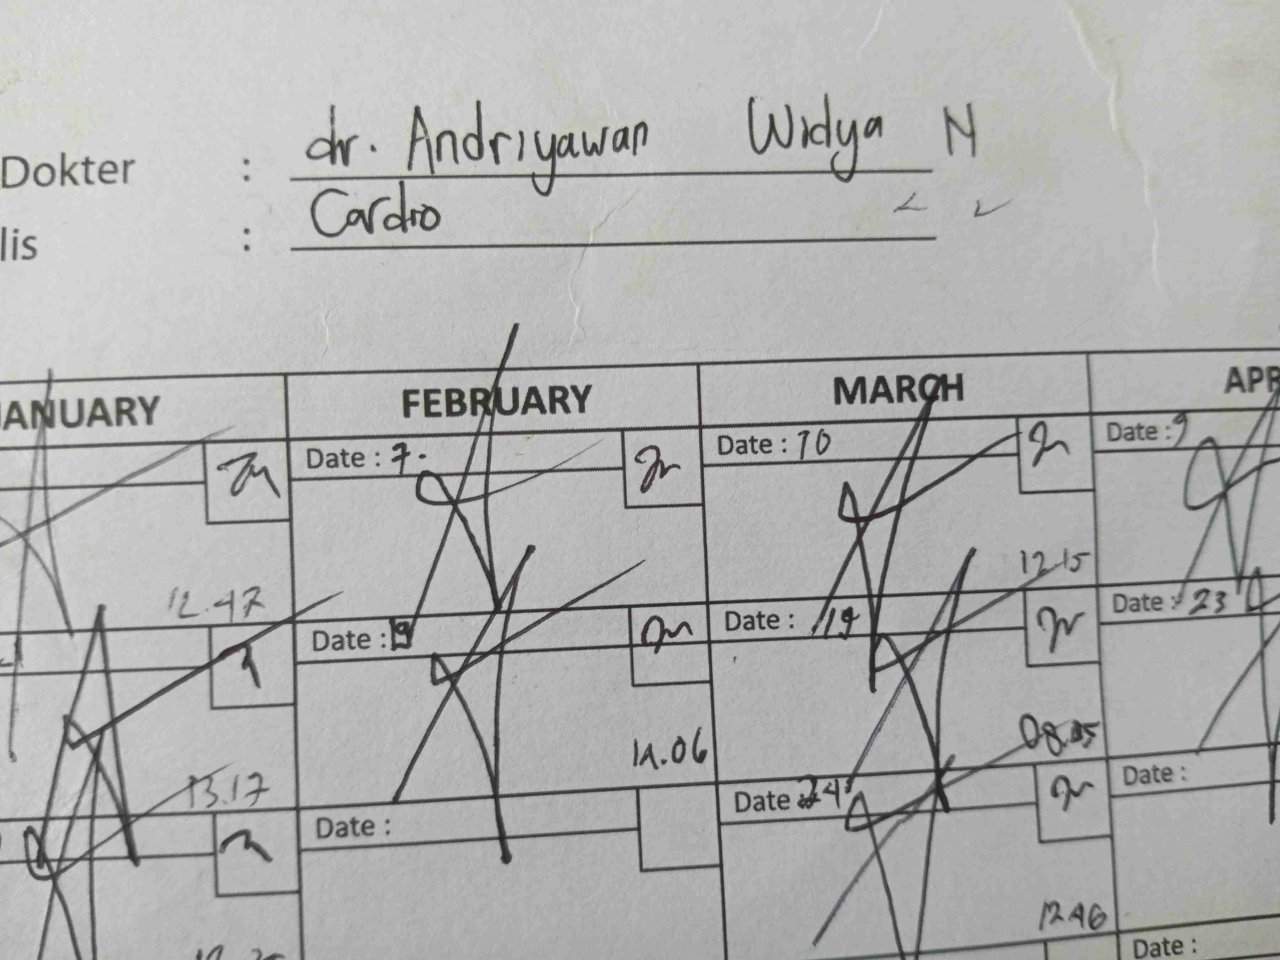 Dokter : dr. Andriyawan Widya N
lis : Cardio
JANUARY FEBRUARY MARCH APR
Date : 7. Date : 10 Date : 9
12.47 12.15
Date : 19 Date : 19 Date : 23
13.17 14.06 08.05
Date : Date : 24 Date :
12.46
Date :